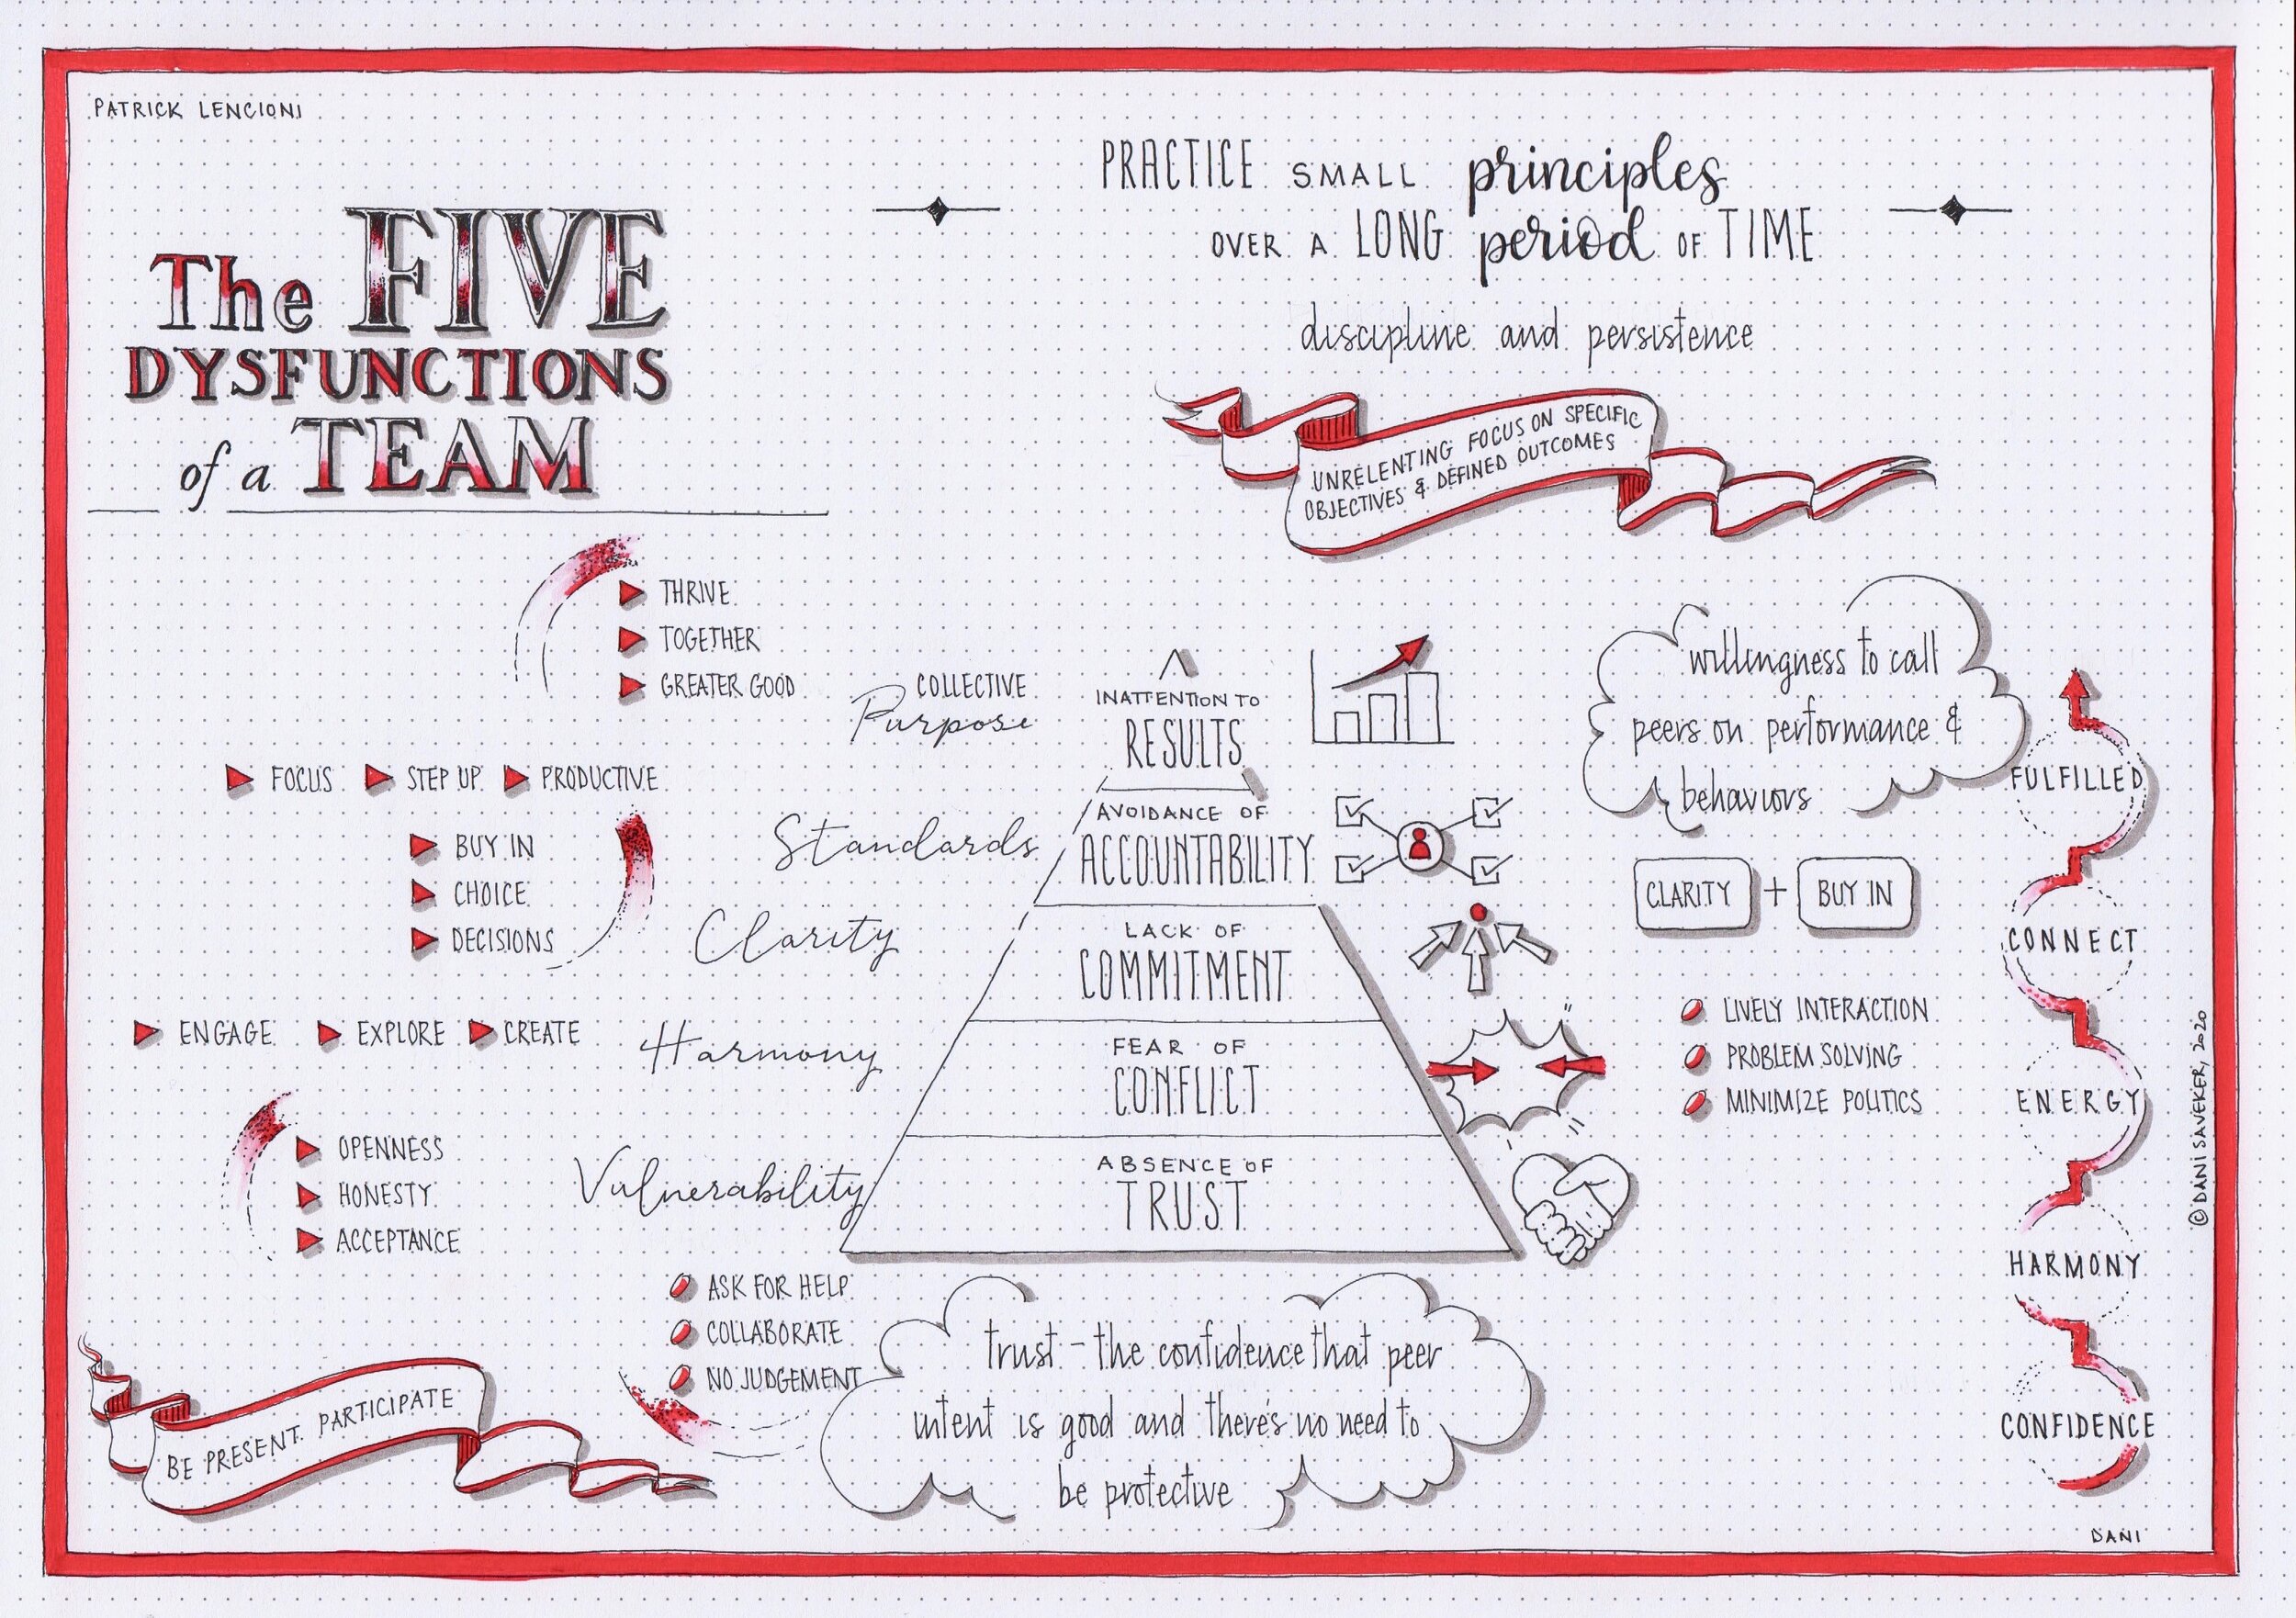 PATRICK LENCIONI
The FIVE
DYSFUNCTIONS
of a TEAM
PRACTICE SMALL principles
OVER A LONG period OF TIME
discipline and persistence
UNRELENTING FOCUS ON SPECIFIC
OBJECTIVES & DEFINED OUTCOMES
THRIVE
TOGETHER
GREATER GOOD
COLLECTIVE
Purpose
FOCUS STEP UP PRODUCTIVE
Standards
BUY IN
CHOICE
DECISIONS
Clarity
ENGAGE EXPLORE CREATE
Harmony
OPENNESS
HONESTY
ACCEPTANCE
Vulnerability
INATTENTION TO
RESULTS
AVOIDANCE OF
ACCOUNTABILITY
LACK OF
COMMITMENT
FEAR OF
CONFLICT
ABSENCE OF
TRUST
willingness to call
peers on performance &
behaviors
CLARITY + BUY IN
LIVELY INTERACTION
PROBLEM SOLVING
MINIMIZE POLITICS
FULFILLED
CONNECT
ENERGY
HARMONY
CONFIDENCE
ASK FOR HELP
COLLABORATE
NO JUDGEMENT
BE PRESENT. PARTICIPATE
trust - the confidence that peer
intent is good and there's no need to
be protective
© DANI SAVEKER, 2020
DANI